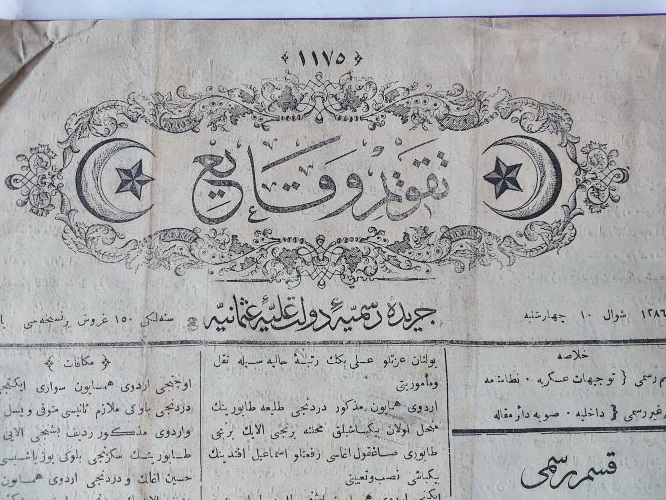 ﴿ ١١٧٥ ﴾
تقويم وقايع
جريدهٔ رسميهٔ دولت عليهٔ عثمانيه
١٢٨٦ شوال ١٠ چهارشنبه
سنه‌لكى ١٥٠ غروش نسخه‌سى
خلاصه
رسمى { توجيهات عسكريه ٠ نظامنامه
غير رسمى { داخليه ٠ صوبه دائر مقاله
قسم رسمى
بولنان عزتلو على بك رتبهٔ حاليه سيله نقل
ومأموريتى
اردوى همايون مذكور دردنجى طليعه طابورينك
منحل اولان بيكباشيلق محلنه برنجى الايك برنجى
طابورى صاغقول اغاسى رفعتلو اسماعيل افندينك
بيكباشى نصب وتعيينى
﴿ مكافات ﴾
اوچنجى اردوى همايون سوارى ايكنجى
دردنجى بلوكى ملازم ثانيسى متوفى ويسل
واردوى مذكور رديف بشنجى الايى
طابورينك سكزنجى بلوكى يوزباشيسى
حسين اغانك و دردنجى اردوى همايون